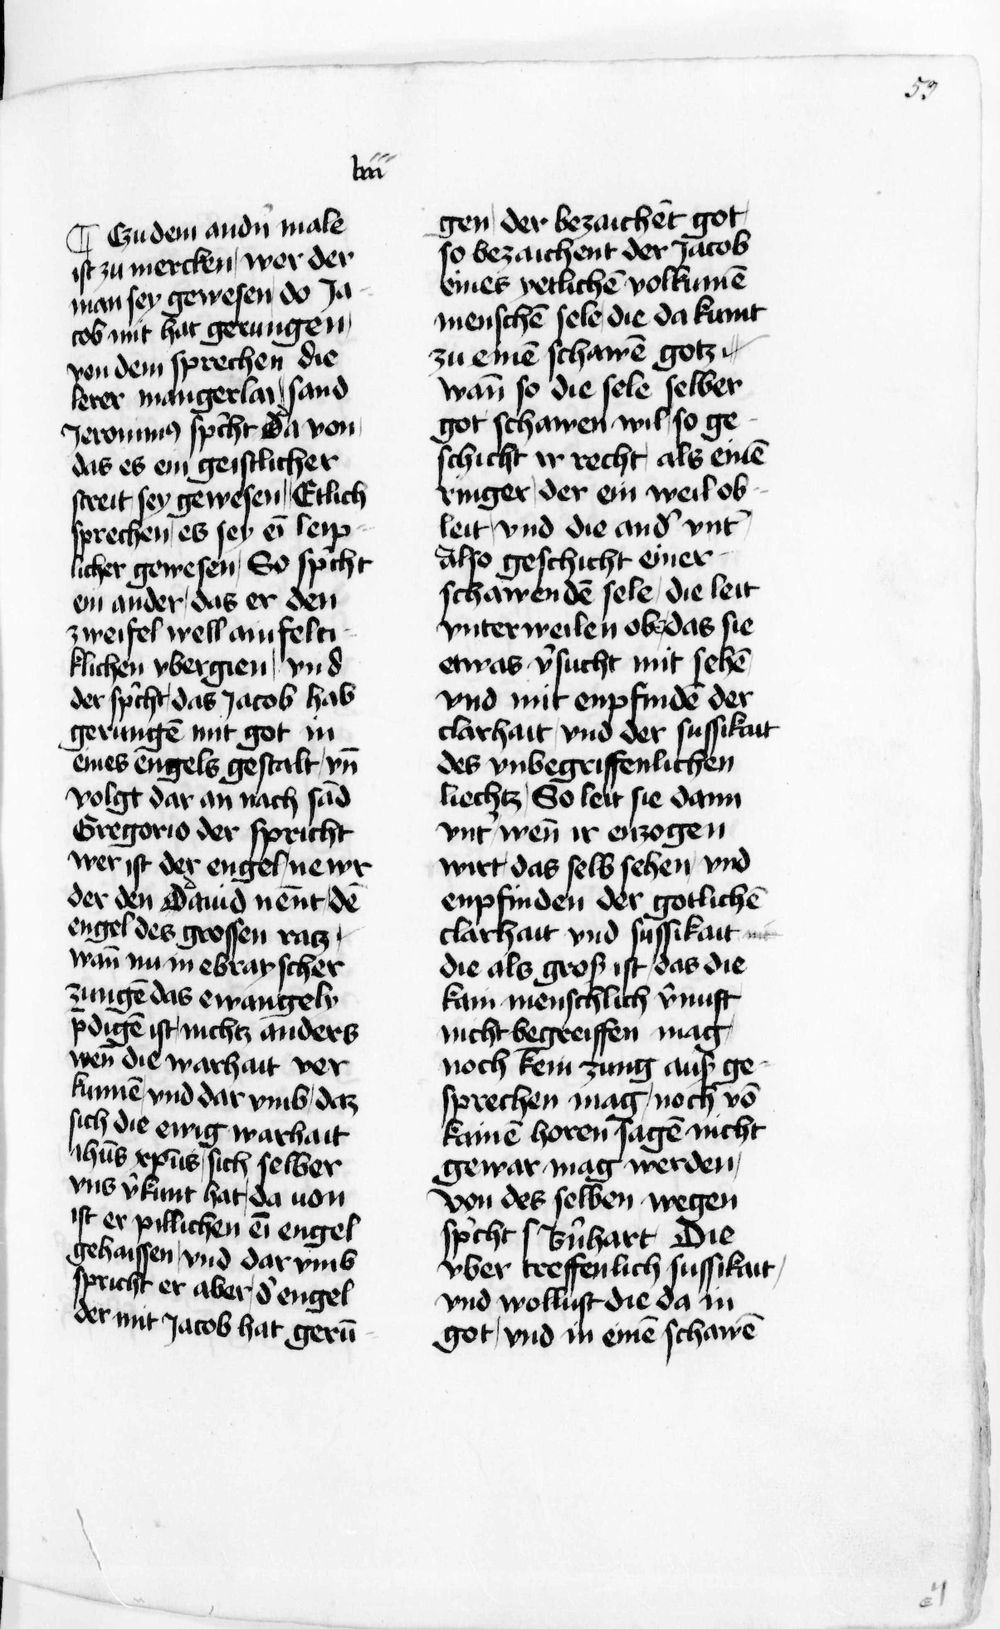 59
lviii
¶ Czu dem andn̄ male
ist zu mercken / wer der
man sey gewesen / do Ja-
cob mit hat gerungen /
von dem sprechen die
lerer mangerlai / sand
Jeronimꝰ sp̄cht Da von /
das es ein geistlicher
streit sey gewesen / Etlich
sprechen / es sey eī leip-
licher gewesen / So sp̄cht
ein ander / das er den
zweifel well ainfelti-
klichen vbergien / vnd
der sp̄cht / das Jacob hab
gerungē mit got in
eines engels gestalt / vn̄
volgt dar an nach sād
Gregorio der spricht
wer ist der engel / newr
der den Dauid nen̄t / dē
engel des grossen ratz /
wan̄ nu in ebrayscher
zungē das ewangely
p̄digē ist / nichtz anders
wen̄ die warhait ver
kunnē / vnd dar vmb / daz
sich die ewig warhait
ihūs xp̄us / sich selber
vns v̄kunt hat / da uon
ist er pillichen eī engel
gehaissen / vnd dar vmb
spricht er aber / d̄ engel
der mit Jacob hat gerū-
gen / der bezaichēt got /
so bezaichent der Jacob
eines yetlichē volkumē
menschē sele / die da kumt
zu einē schawē gotz /
wan̄ so die sele selber
got schawen wil / so ge-
schicht ir recht / als einē
ringer / der ein weil ob-
leit / vnd die and̄ vnt̄
also geschicht einer
schawendē sele / die leit
vnterweilen ob / das sie
etwas v̄sucht mit sehē /
vnd mit enpfindē der
clarhait / vnd der sussikait
des vnbegriffenlichen
liechtz / So leit sie dann
vnt̄ / wen̄ ir enzogen
wirt / das selb sehen / vnd
enpfinden der gotlichē
clarhait vnd sussikait
die als groß ist / das die
kain menschlich v̄nuft
nicht begreiffen mag /
noch kein zung auß ge-
sprechen mag / noch vō
kainē horen sagē nicht
gewar mag werden /
von des selben wegen
sp̄cht S Bn̄hart Die
vber treffenlich sussikait /
vnd wollust die da in
got / vnd in einē schawē